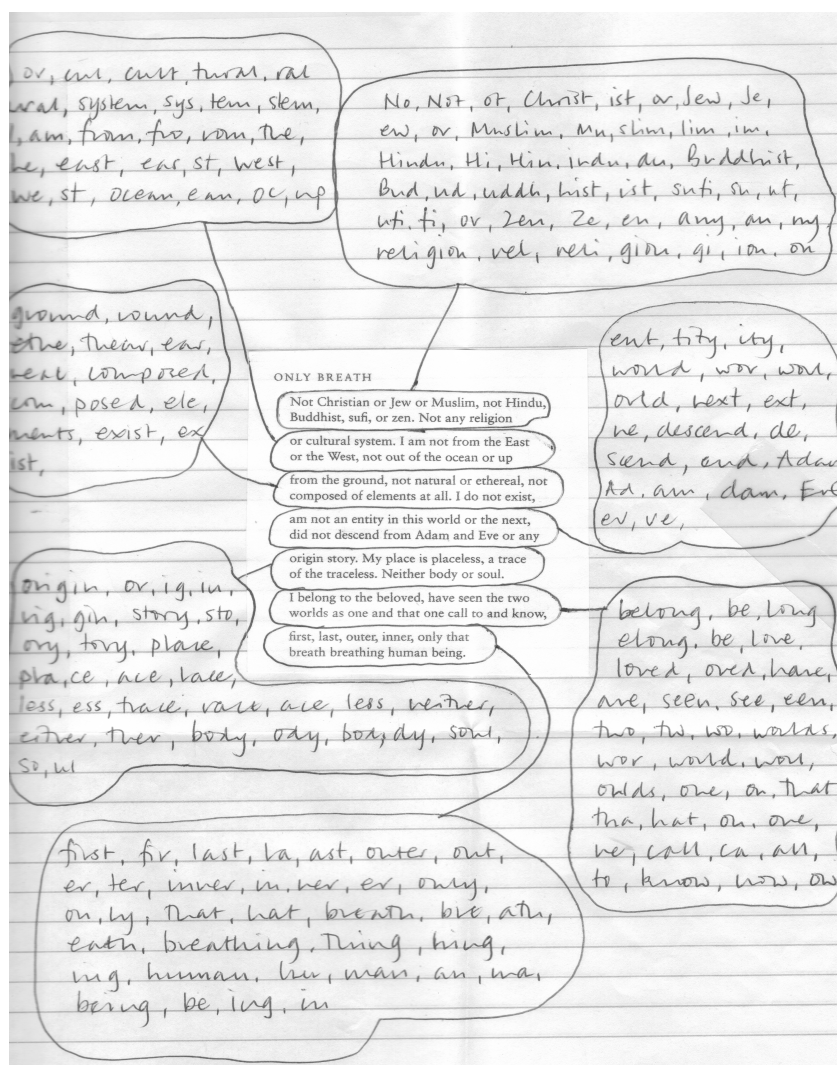 or, cul, cult, tural, ral
ural, system, sys, tem, stem,
I, am, from, fro, rom, the,
he, east, ear, st, west,
we, st, ocean, ean, oc, up
No, Not, ot, Christ, ist, or, Jew, Je,
ew, or, Muslim, Mu, slim, lim, im,
Hindu, Hi, Hin, indu, du, Buddhist,
Bud, ud, uddh, hist, ist, sufi, su, uf,
ufi, fi, or, Zen, Ze, en, any, an, ny,
religion, rel, reli, gion, gi, ion, on
ground, round,
ethe, thear, ear,
real, composed,
com, posed, ele,
ments, exist, ex
ist,
ONLY BREATH
Not Christian or Jew or Muslim, not Hindu,
Buddhist, sufi, or zen. Not any religion
or cultural system. I am not from the East
or the West, not out of the ocean or up
from the ground, not natural or ethereal, not
composed of elements at all. I do not exist,
am not an entity in this world or the next,
did not descend from Adam and Eve or any
origin story. My place is placeless, a trace
of the traceless. Neither body or soul.
I belong to the beloved, have seen the two
worlds as one and that one call to and know,
first, last, outer, inner, only that
breath breathing human being.
ent, tity, ity,
world, wor, worl,
orld, next, ext,
ne, descend, de,
scend, end, Adam
Ad, am, dam, Eve
ev, ve,
origin, or, ig, in,
rig, gin, story, sto,
ory, tory, place,
pla, ce, ace, lace,
less, ess, trace, race, ace, less, neither,
either, ther, body, ody, bod, dy, soul,
so, ul
belong, be, long
elong, be, love,
loved, oved, have,
ave, seen, see, een,
two, tw, wo, worlds,
wor, world, worl,
orlds, one, on, that
tha, hat, on, one,
ne, call, ca, all,
to, know, now, ow
first, fir, last, la, ast, outer, out,
er, ter, inner, in, ner, er, only,
on, ly, that, hat, breath, bre, ath,
eath, breathing, thing, hing,
ing, human, hu, man, an, ma,
being, be, ing, in